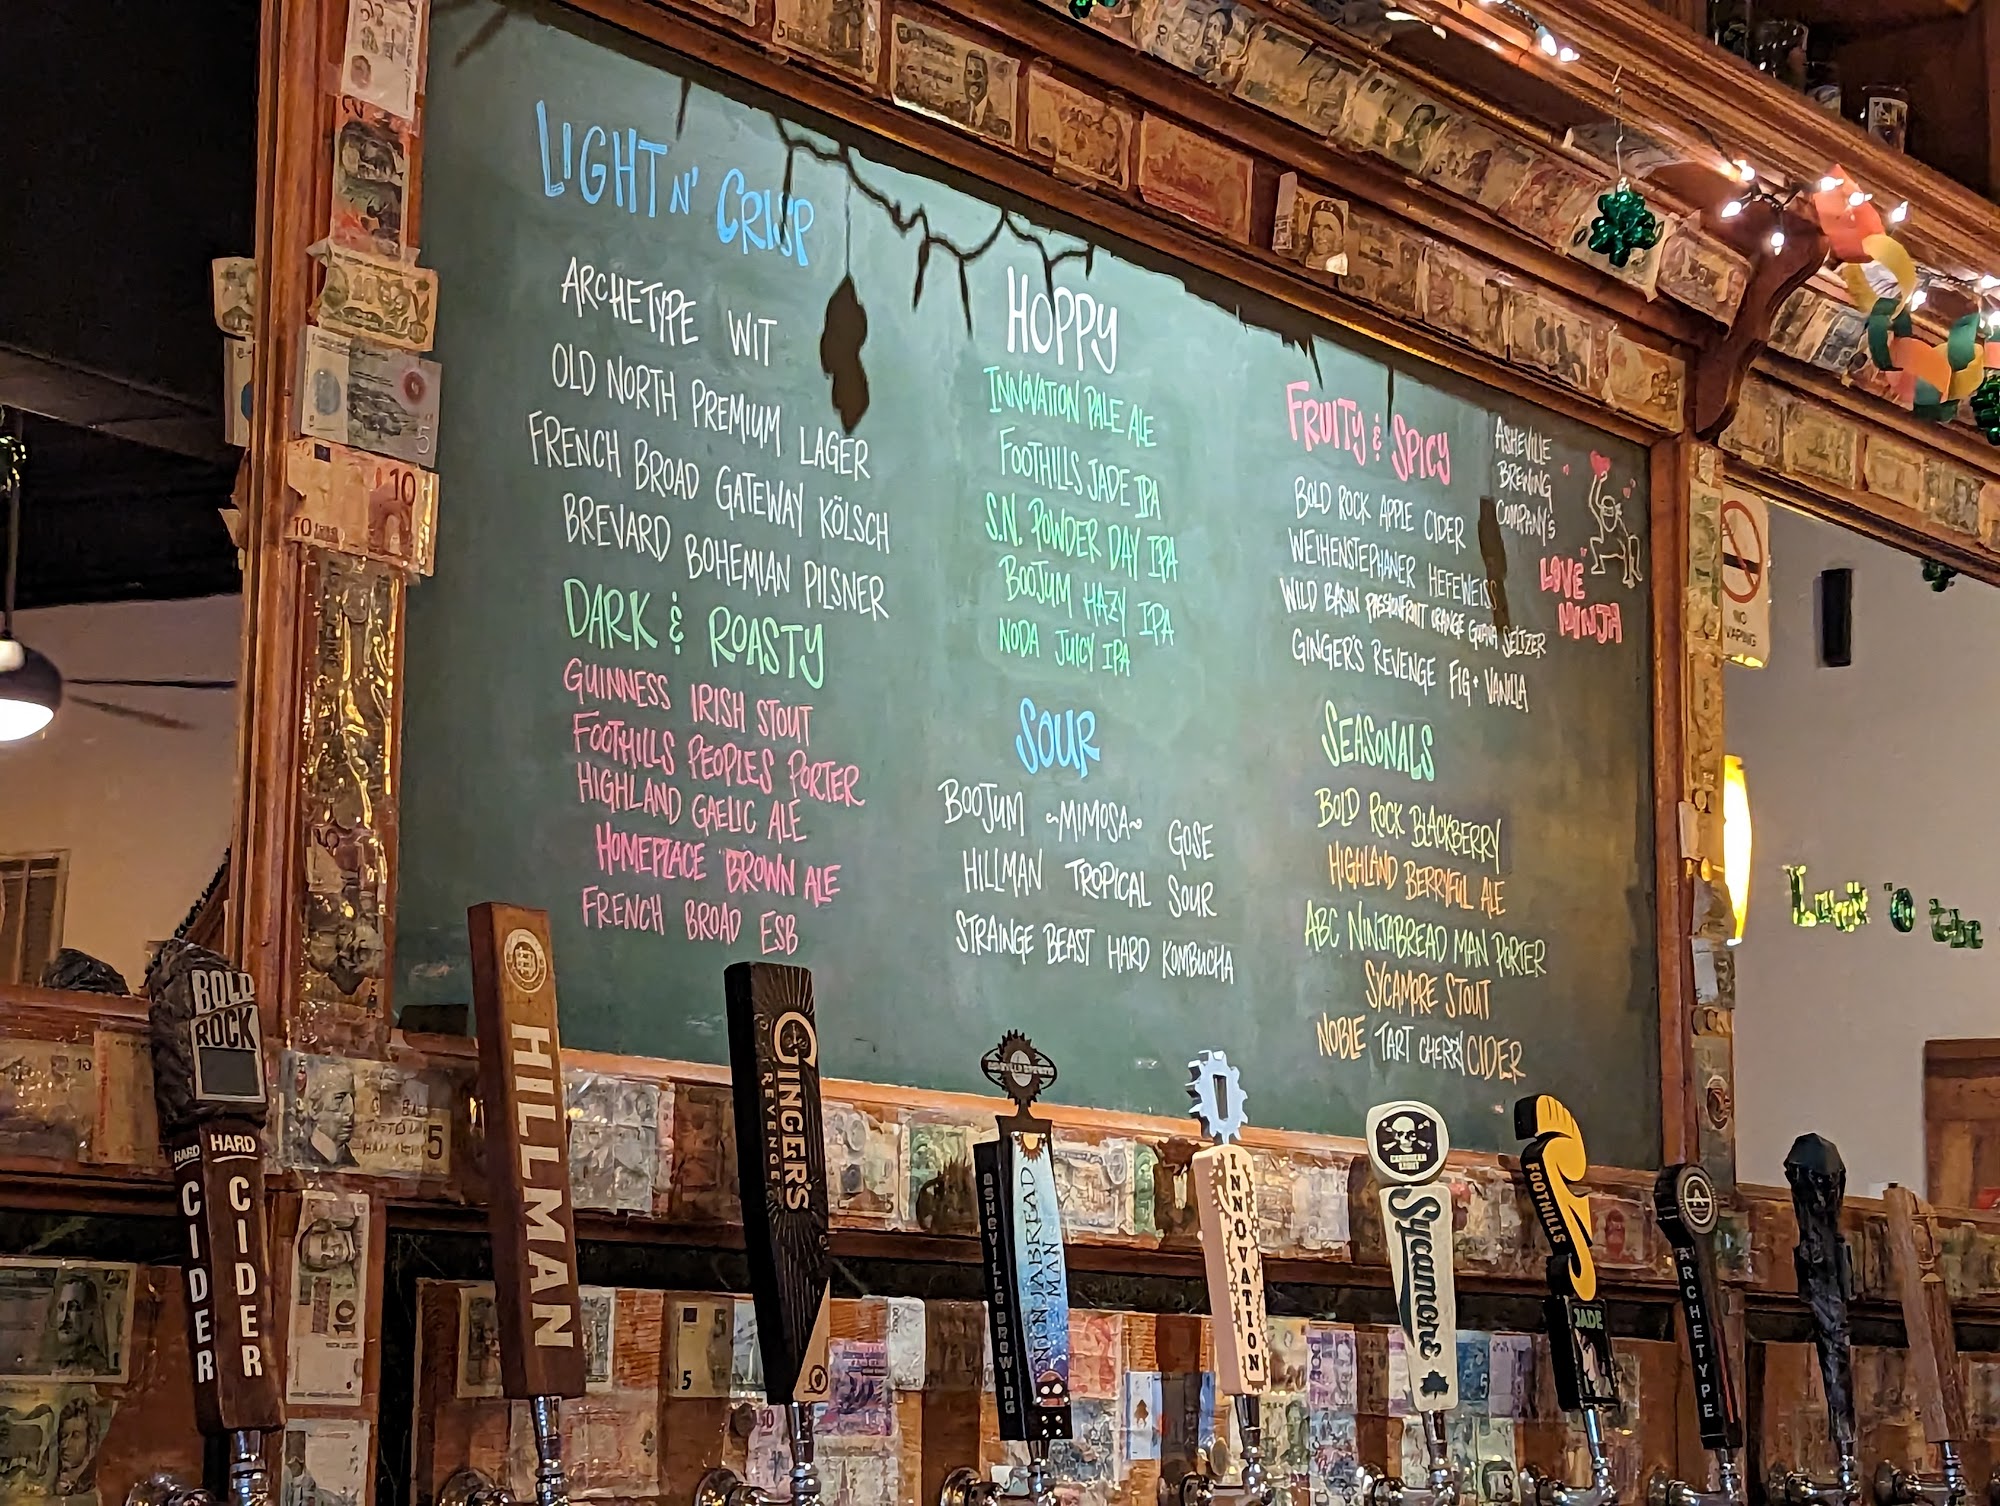 LIGHT N' CRISP
ARCHETYPE WIT
OLD NORTH PREMIUM LAGER
FRENCH BROAD GATEWAY KÖLSCH
BREVARD BOHEMIAN PILSNER
DARK & ROASTY
GUINNESS IRISH STOUT
FOOTHILLS PEOPLES PORTER
HIGHLAND GAELIC ALE
HOMEPLACE BROWN ALE
FRENCH BROAD ESB
HOPPY
INNOVATION PALE ALE
FOOTHILLS JADE IPA
S.N. POWDER DAY IPA
BOOJUM HAZY IPA
NODA JUICY IPA
SOUR
BOOJUM ~MIMOSA~ GOSE
HILLMAN TROPICAL SOUR
STRAINGE BEAST HARD KOMBUCHA
FRUITY & SPICY
BOLD ROCK APPLE CIDER
WEIHENSTEPHANER HEFEWEISS
WILD BASIN PASSIONFRUIT ORANGE GUAVA SELTZER
GINGER'S REVENGE FIG + VANILLA
SEASONALS
BOLD ROCK BLACKBERRY
HIGHLAND BERRYFUL ALE
ABC NINJABREAD MAN PORTER
SYCAMORE STOUT
NOBLE TART CHERRY CIDER
ASHEVILLE
BREWING
COMPANY'S
"LOVE"
NINJA
NO
VAPING
BOLD
ROCK
HARD
CIDER
HARD
CIDER
HILLMAN
GINGER'S
REVENGE
ASHEVILLE BREWING
NINJABREAD
MAN
INNOVATION
Sycamore
FOOTHILLS
JADE
A
ARCHETYPE
10
10
5
5
10
5
5